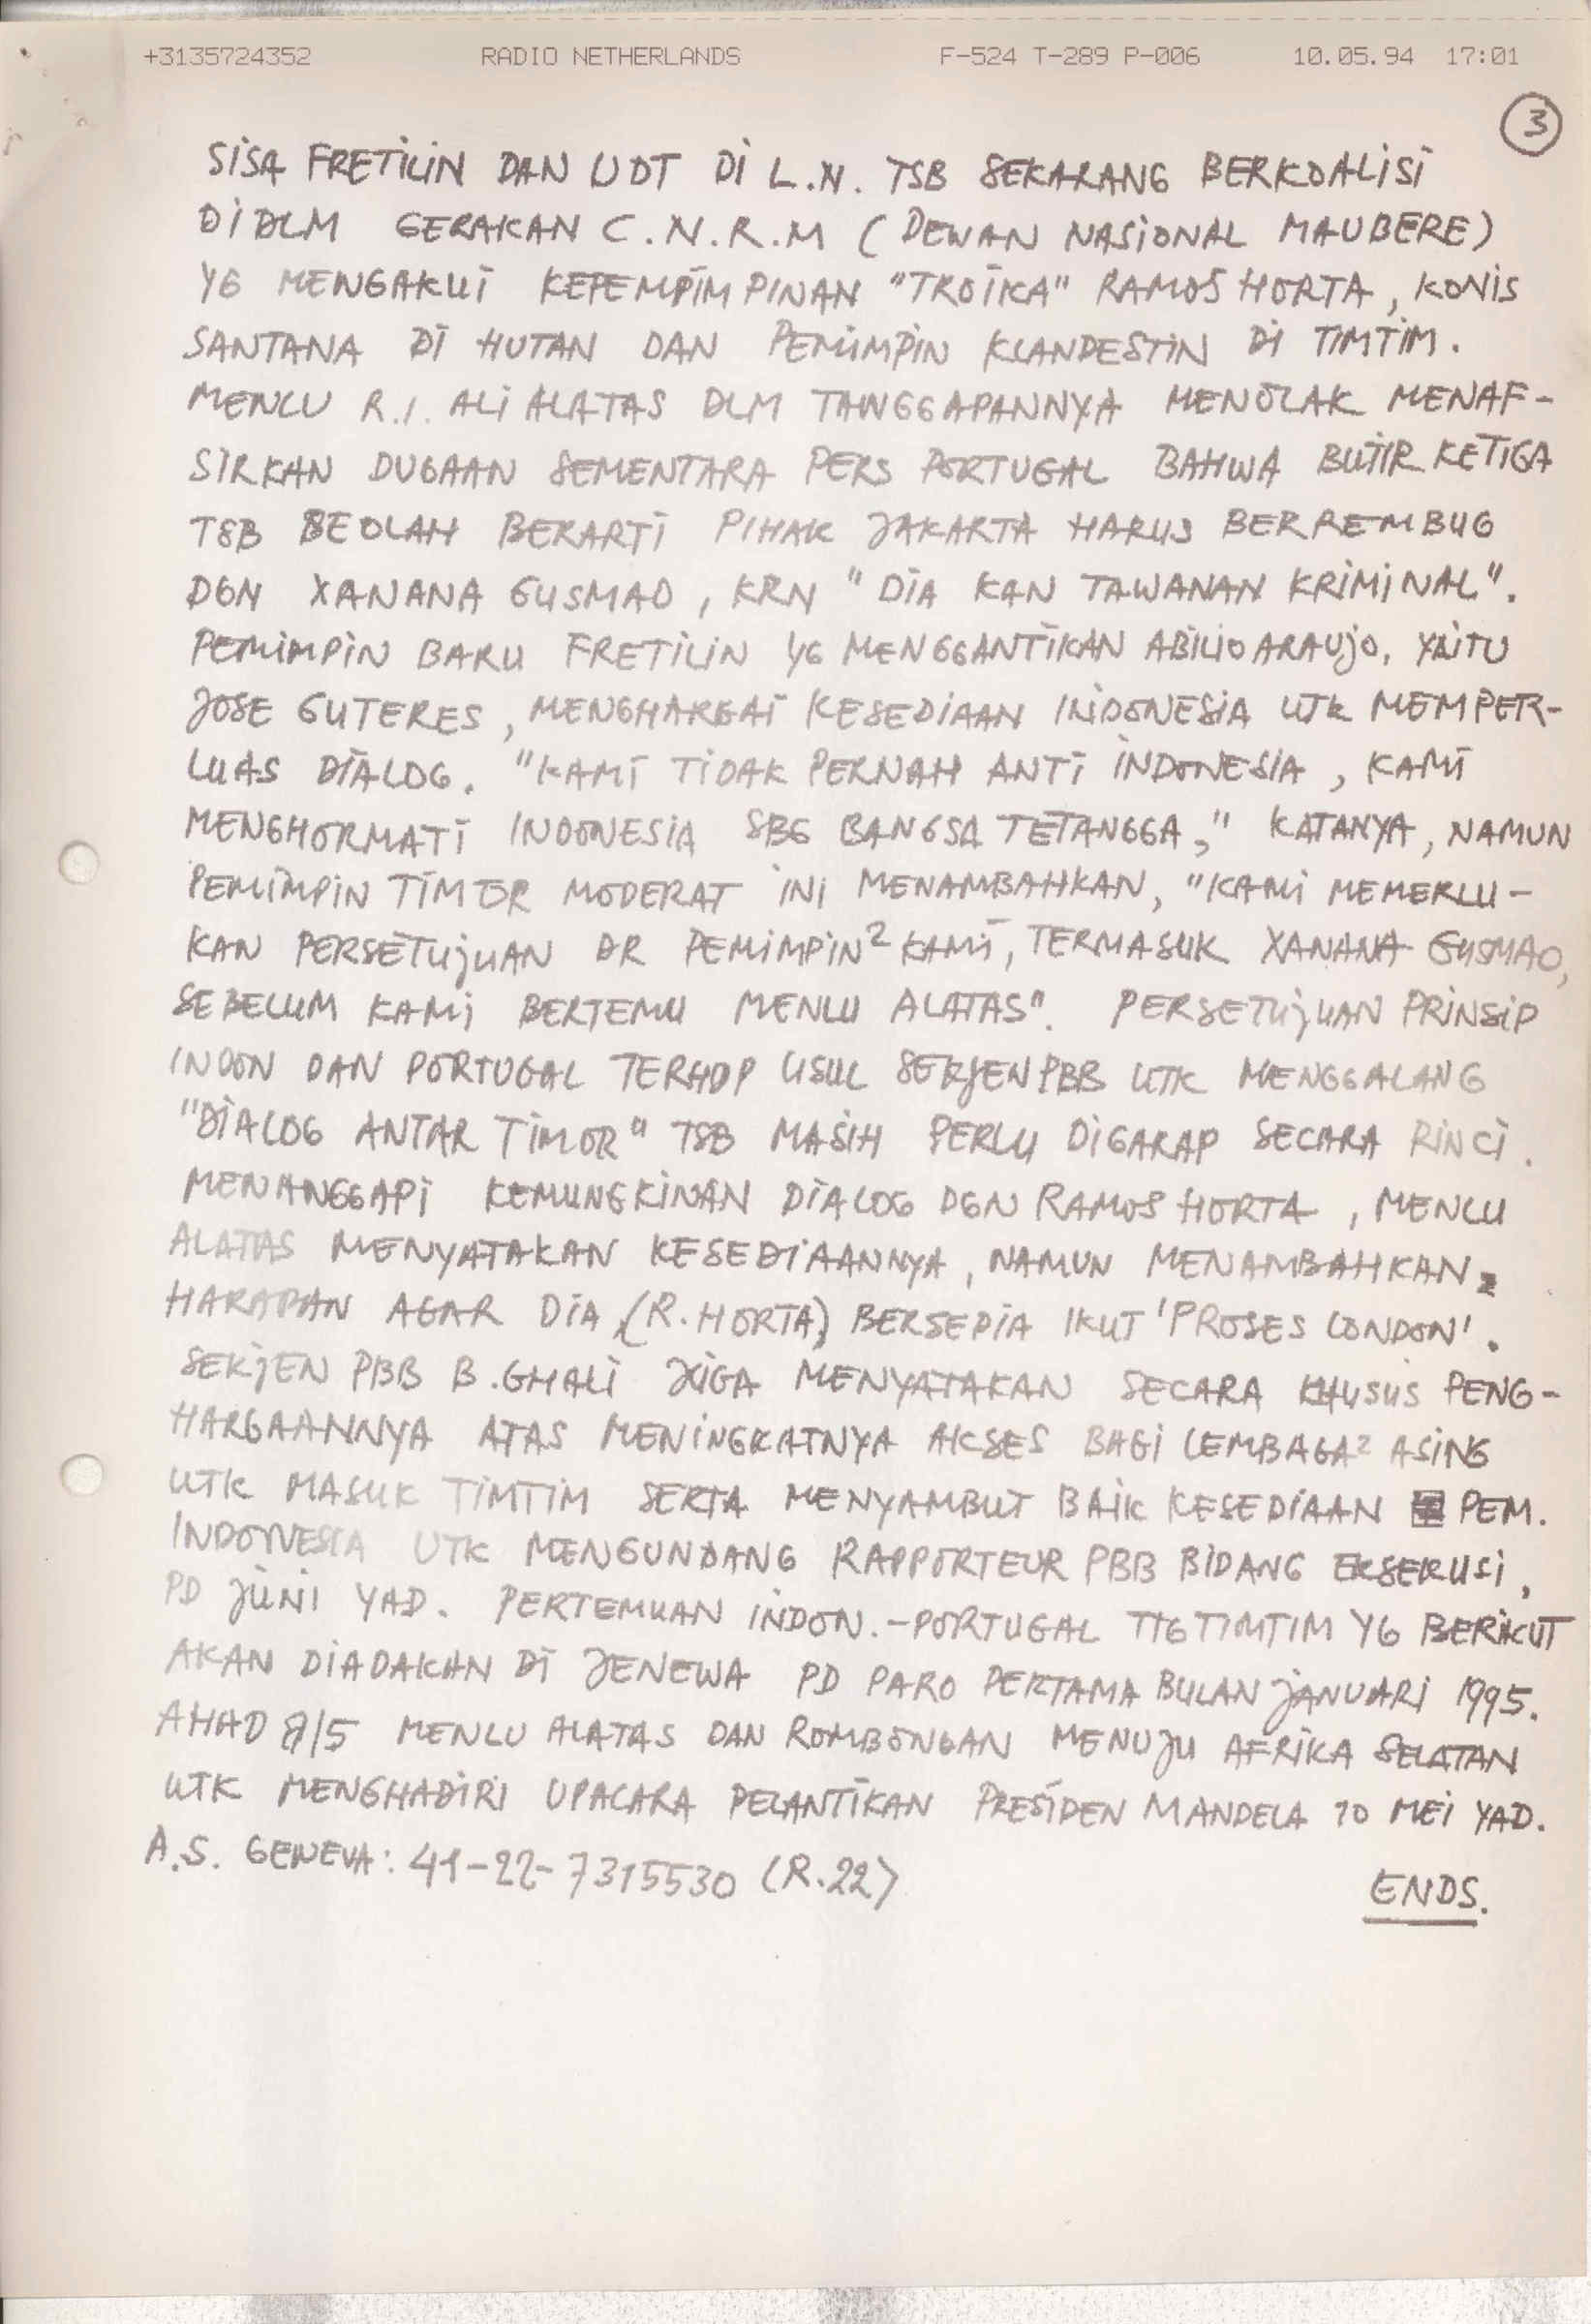 +3135724352 RADIO NETHERLANDS F-524 T-289 P-006 10.05.94 17:01
3
SISA FRETILIN DAN UDT DI L.N. TSB SEKARANG BERKOALISI
DIDLM GERAKAN C.N.R.M (DEWAN NASIONAL MAUBERE)
YG MENGAKUI KEPEMPIMPINAN "TROIKA" RAMOS HORTA, KONIS
SANTANA DI HUTAN DAN PEMIMPIN KLANDESTIN DI TIMTIM.
MENLU R.I. ALI ALATAS DLM TANGGAPANNYA MENOLAK MENAF-
SIRKAN DUGAAN SEMENTARA PERS PORTUGAL BAHWA BUTIR KETIGA
TSB SEOLAH BERARTI PIHAK JAKARTA HARUS BERREMBUG
DGN XANANA GUSMAO, KRN "DIA KAN TAWANAN KRIMINAL".
PEMIMPIN BARU FRETILIN YG MENGGANTIKAN ABILIO ARAUJO, YAITU
JOSE GUTERES, MENGHARGAI KESEDIAAN INDONESIA UTK MEMPER-
LUAS DIALOG. "KAMI TIDAK PERNAH ANTI INDONESIA, KAMI
MENGHORMATI INDONESIA SBG BANGSA TETANGGA," KATANYA, NAMUN
PEMIMPIN TIMOR MODERAT INI MENAMBAHKAN, "KAMI MEMERLU-
KAN PERSETUJUAN DR PEMIMPIN² KAMI, TERMASUK XANANA GUSMAO,
SEBELUM KAMI BERTEMU MENLU ALATAS". PERSETUJUAN PRINSIP
INDON DAN PORTUGAL TERHDP USUL SEKJEN PBB UTK MENGGALANG
"DIALOG ANTAR TIMOR" TSB MASIH PERLU DIGARAP SECARA RINCI.
MENANGGAPI KEMUNGKINAN DIALOG DGN RAMOS HORTA, MENLU
ALATAS MENYATAKAN KESEDIAANNYA, NAMUN MENAMBAHKAN
HARAPAN AGAR DIA (R. HORTA) BERSEDIA IKUT 'PROSES LONDON'.
SEKJEN PBB B. GHALI JUGA MENYATAKAN SECARA KHUSUS PENG-
HARGAANNYA ATAS MENINGKATNYA AKSES BAGI LEMBAGA² ASING
UTK MASUK TIMTIM SERTA MENYAMBUT BAIK KESEDIAAN PEM.
INDONESIA UTK MENGUNDANG RAPPORTEUR PBB BIDANG EKSEKUSI,
PD JUNI YAD. PERTEMUAN INDON.-PORTUGAL TTG TIMTIM YG BERIKUT
AKAN DIADAKAN DI JENEWA PD PARO PERTAMA BULAN JANUARI 1995.
AHAD 8/5 MENLU ALATAS DAN ROMBONGAN MENUJU AFRIKA SELATAN
UTK MENGHADIRI UPACARA PELANTIKAN PRESIDEN MANDELA 10 MEI YAD.
A.S. GENEVA: 41-22-7315530 (R.22)
ENDS.